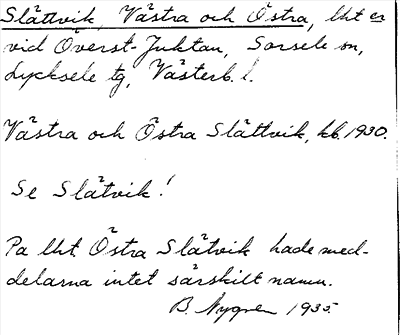 Slättvik, Västra och Östra, lht er
vid Överst-Juktan, Sorsele sn,
Lycksele tg, Västerb. l.
Västra och Östra Slättvik, kb. 1930.
Se Slätvik!
På lht. Östra Slätvik hade med-
delarna intet särskilt namn.
B. Nygren 1935